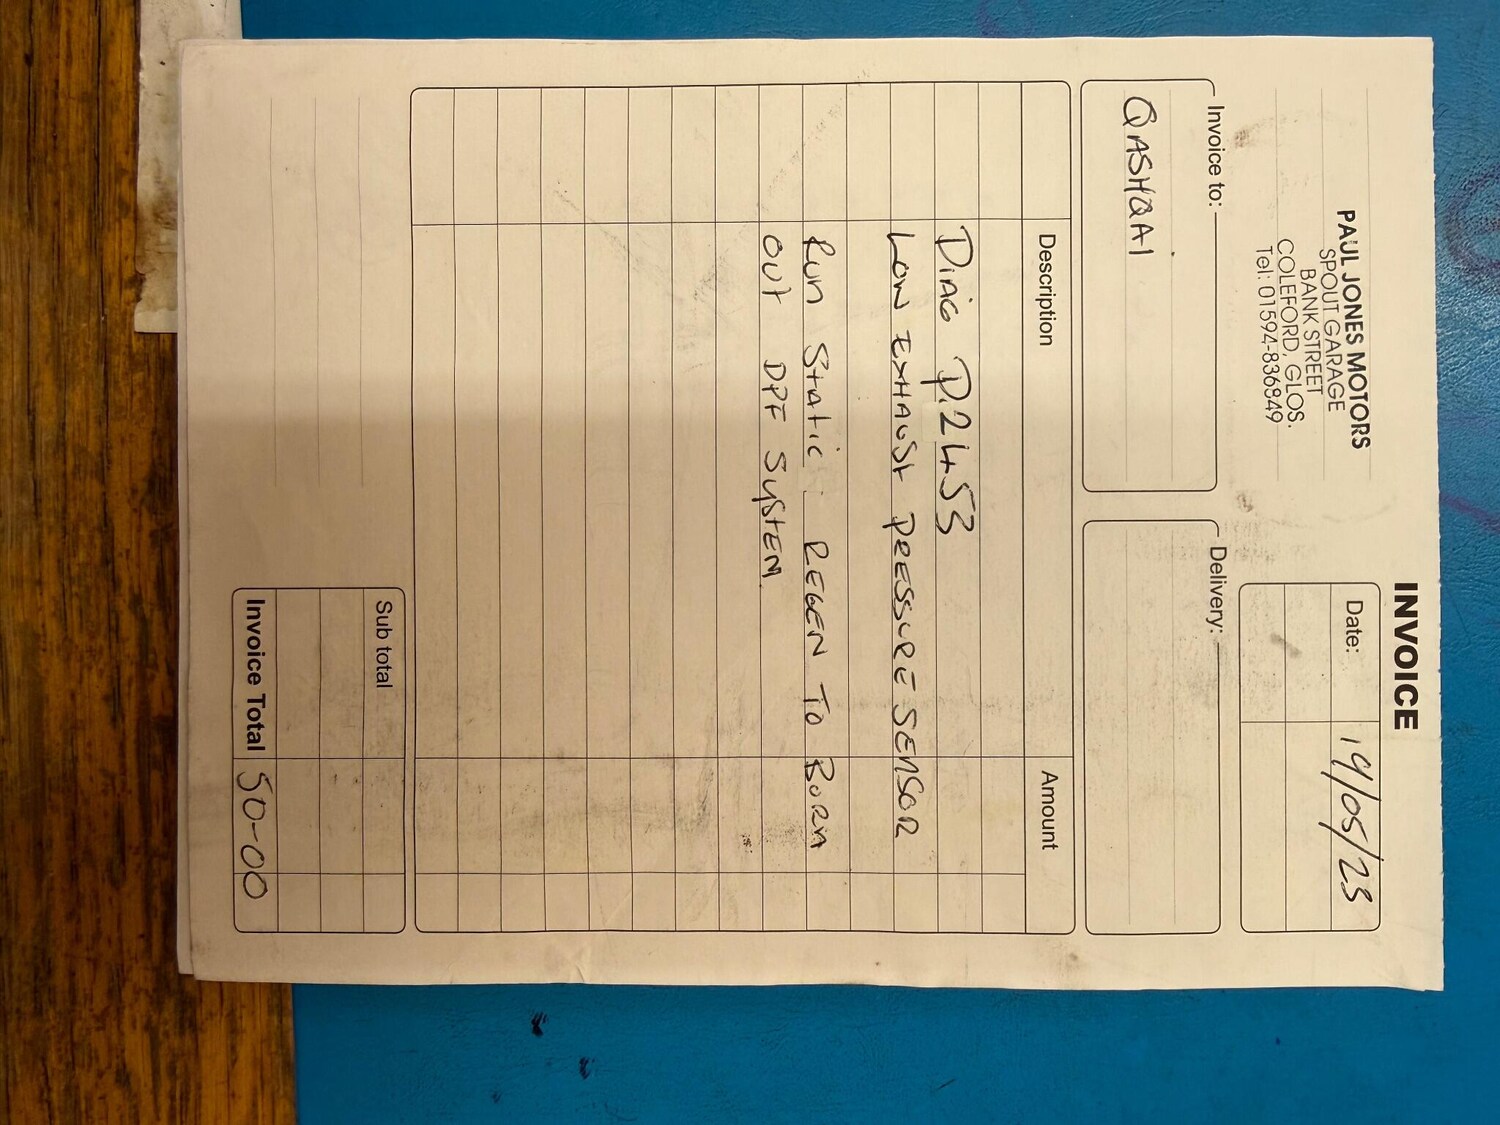 INVOICE
PAUL JONES MOTORS
SPOUT GARAGE
BANK STREET
COLEFORD, GLOS.
Tel: 01594-836849
Date: 19/05/23
Invoice to:
QASHQAI
Delivery:
Description Amount
DIAG P2453
LOW EXHAUST PRESSURE SENSOR
RUN STATIC REGEN TO BURN
OUT DPF SYSTEM
Sub total
Invoice Total 50-00